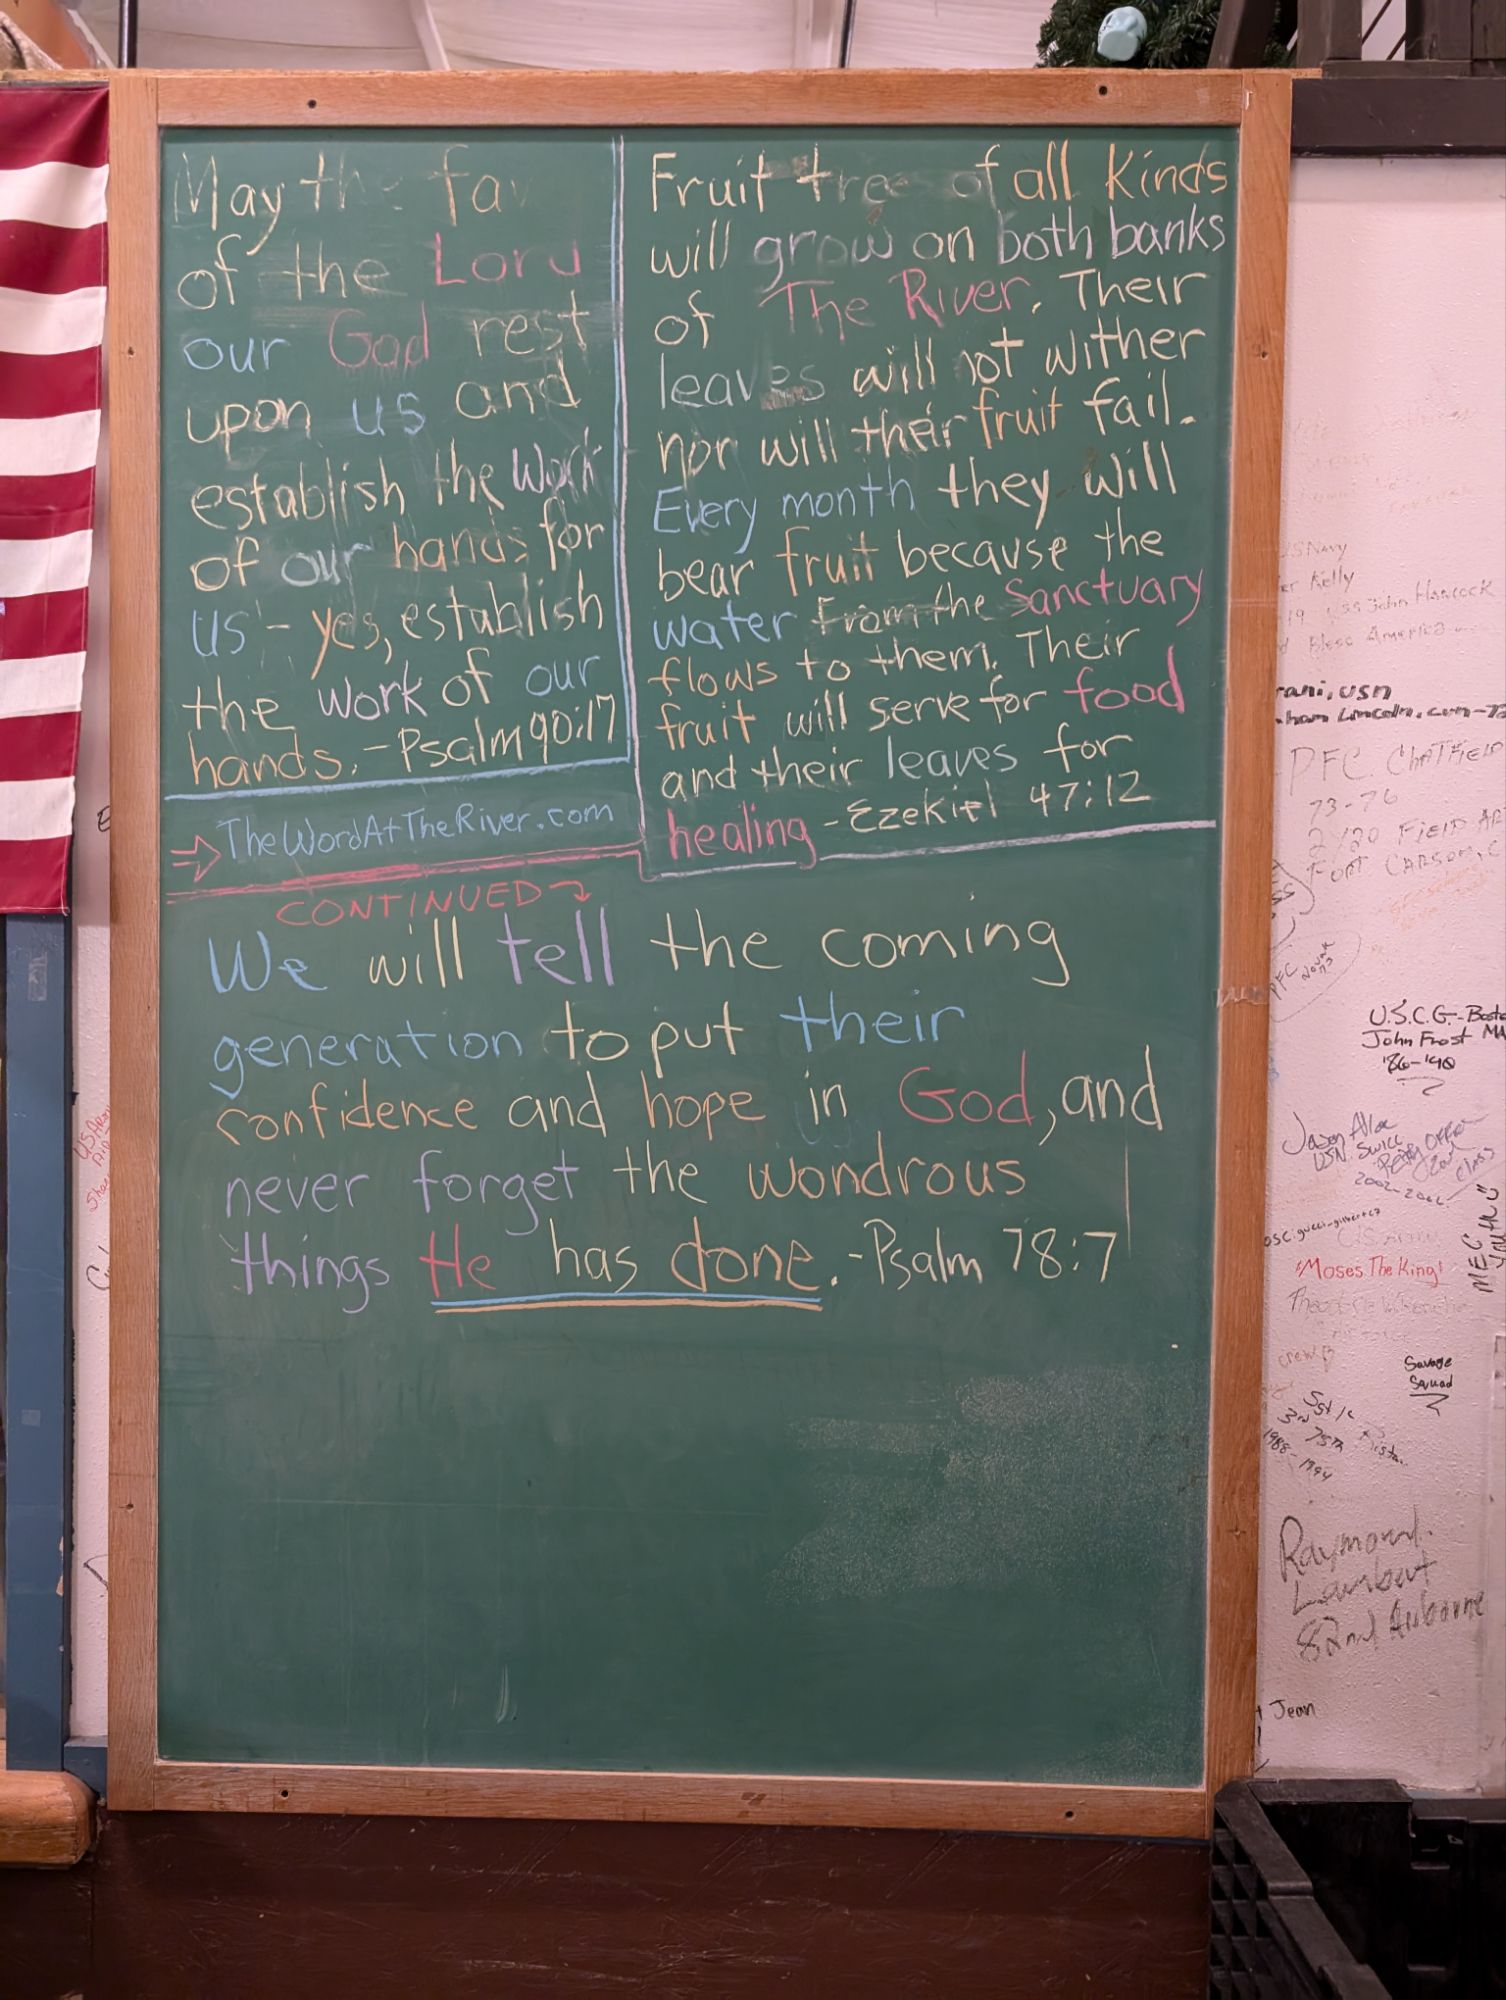 May the fav
of the Lord
our God rest
upon us and
establish the work
of our hands for
us - yes, establish
the work of our
hands. - Psalm 90:17
TheWordAtTheRiver.com
Fruit tree of all Kinds
will grow on both banks
of The River. Their
leaves will not wither
nor will their fruit fail.
Every month they will
bear fruit because the
water from the Sanctuary
flows to them. Their
fruit will serve for food
and their leaves for
healing - Ezekiel 47:12
CONTINUED
We will tell the coming
generation to put their
confidence and hope in God, and
never forget the wondrous
things He has done. - Psalm 78:7
Kelly
USS John Hancock
Bless America
rani, usn
ham Lincoln, cvn-72
PFC Chatfield
73-76
2/20 Field
Fort Carson, C
PFC
U.S.C.G.- Bost
John Frost MA
'86-'90
Jason
USN
2002-
"Moses The King"
crew
Savage
Squad
75th
1988-1994
Raymond
Lambert
82nd Airborne
Jean